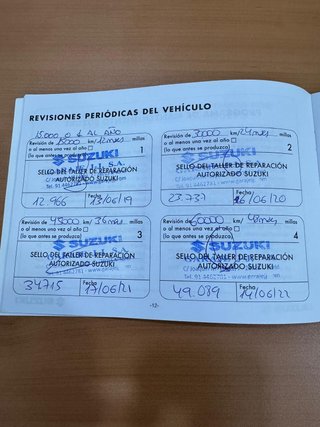 REVISIONES PERIÓDICAS DEL VEHÍCULO
15000 o 1 AL AÑO
Revisión de 15000 km/ 12meses millas
o al menos una vez al año
(lo que antes se produzca)
1
SUZUKI
S.A.
SELLO DEL TALLER DE REPARACIÓN
AUTORIZADO SUZUKI
12.966
Fecha
13/06/19
Revisión de 30000 km/ 24meses millas
o al menos una vez al año
(lo que antes se produzca)
2
SUZUKI
SELLO DEL TALLER DE REPARACIÓN
AUTORIZADO SUZUKI
23.731
Fecha
26/06/20
Revisión de 45000 km/ 36meses millas
o al menos una vez al año
(lo que antes se produzca)
3
SUZUKI
SELLO DEL TALLER DE REPARACIÓN
AUTORIZADO SUZUKI
34715
Fecha
17/06/21
Revisión de 60000 km/ 48meses millas
o al menos una vez al año
(lo que antes se produzca)
4
SUZUKI
SELLO DEL TALLER DE REPARACIÓN
AUTORIZADO SUZUKI
49.039
Fecha
14/06/22
-12-